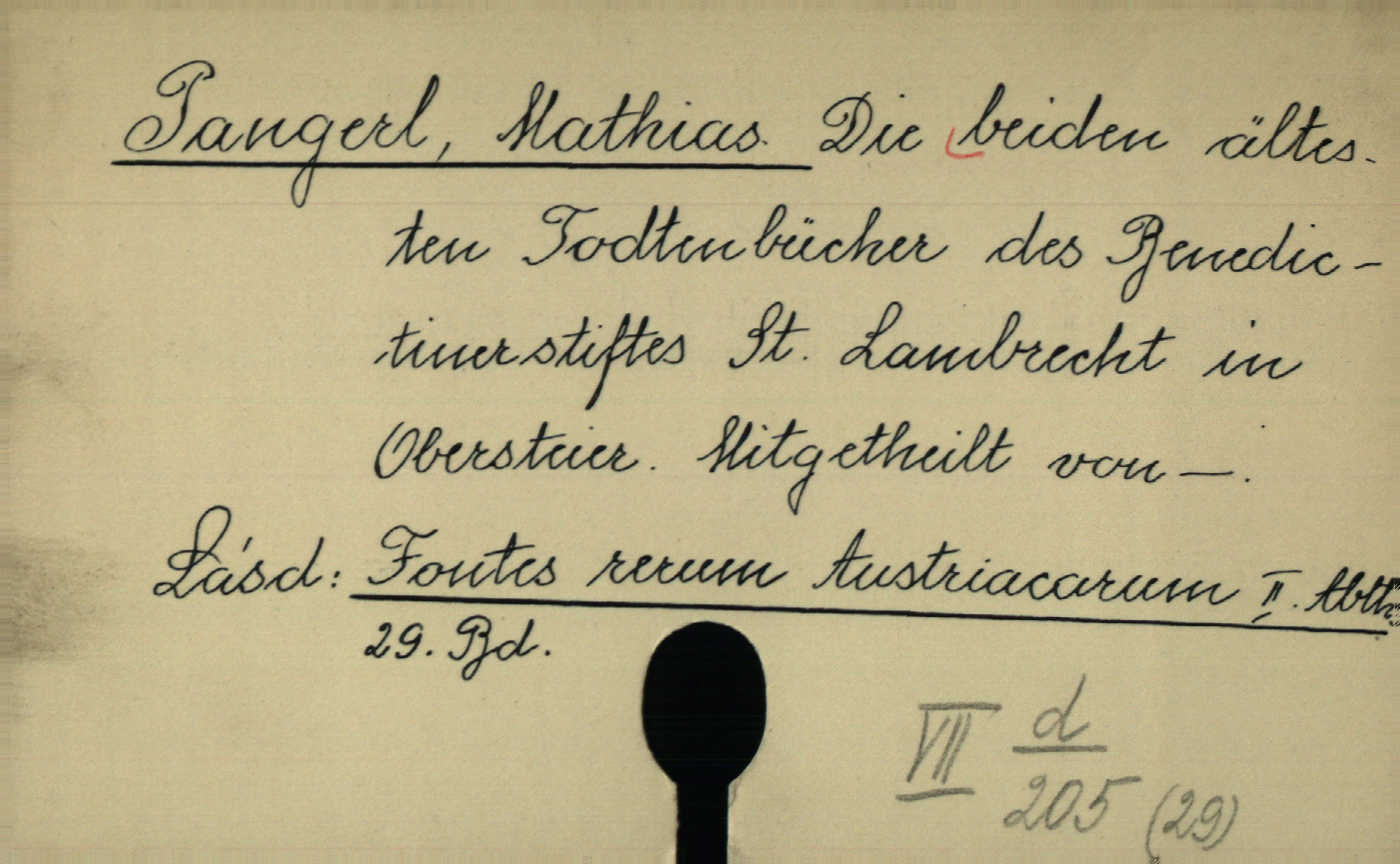 Pangerl, Mathias. Die beiden ältes-
ten Todtenbücher des Benedic-
tinerstiftes St. Lambrecht in
Obersteier. Mitgetheilt von —.
Lásd: Fontes rerum Austriacarum II. Abth.
29. Bd.
VII d/205 (29)